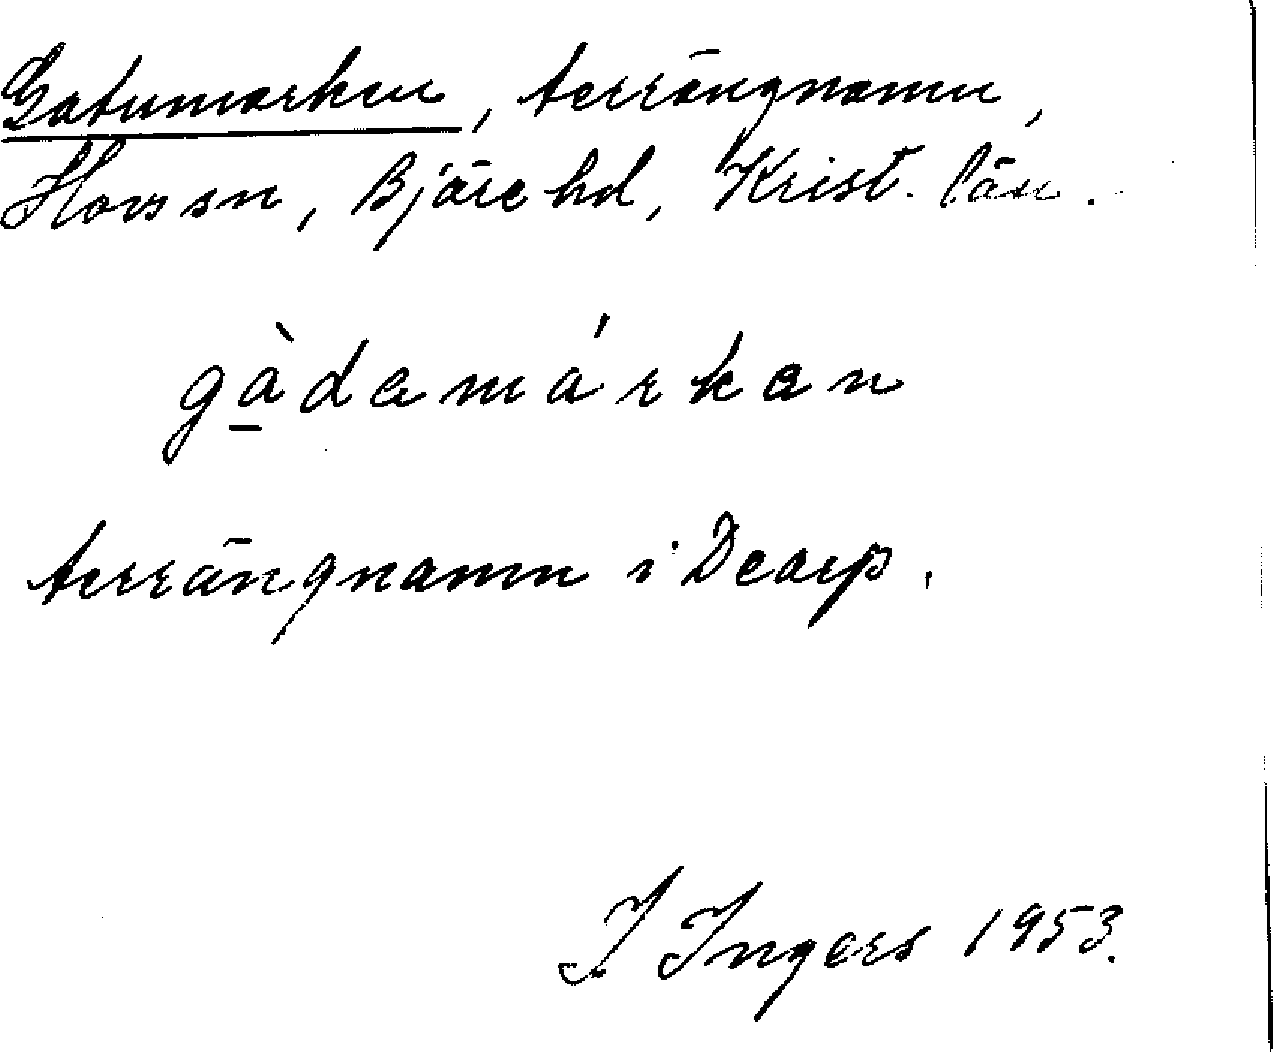 Gatumarken, terrängnamn,
Hovs sn, Bjäre hd, Krist. län.
gàdamárkan
terrängnamn i Dearp.
I Ingers 1953.